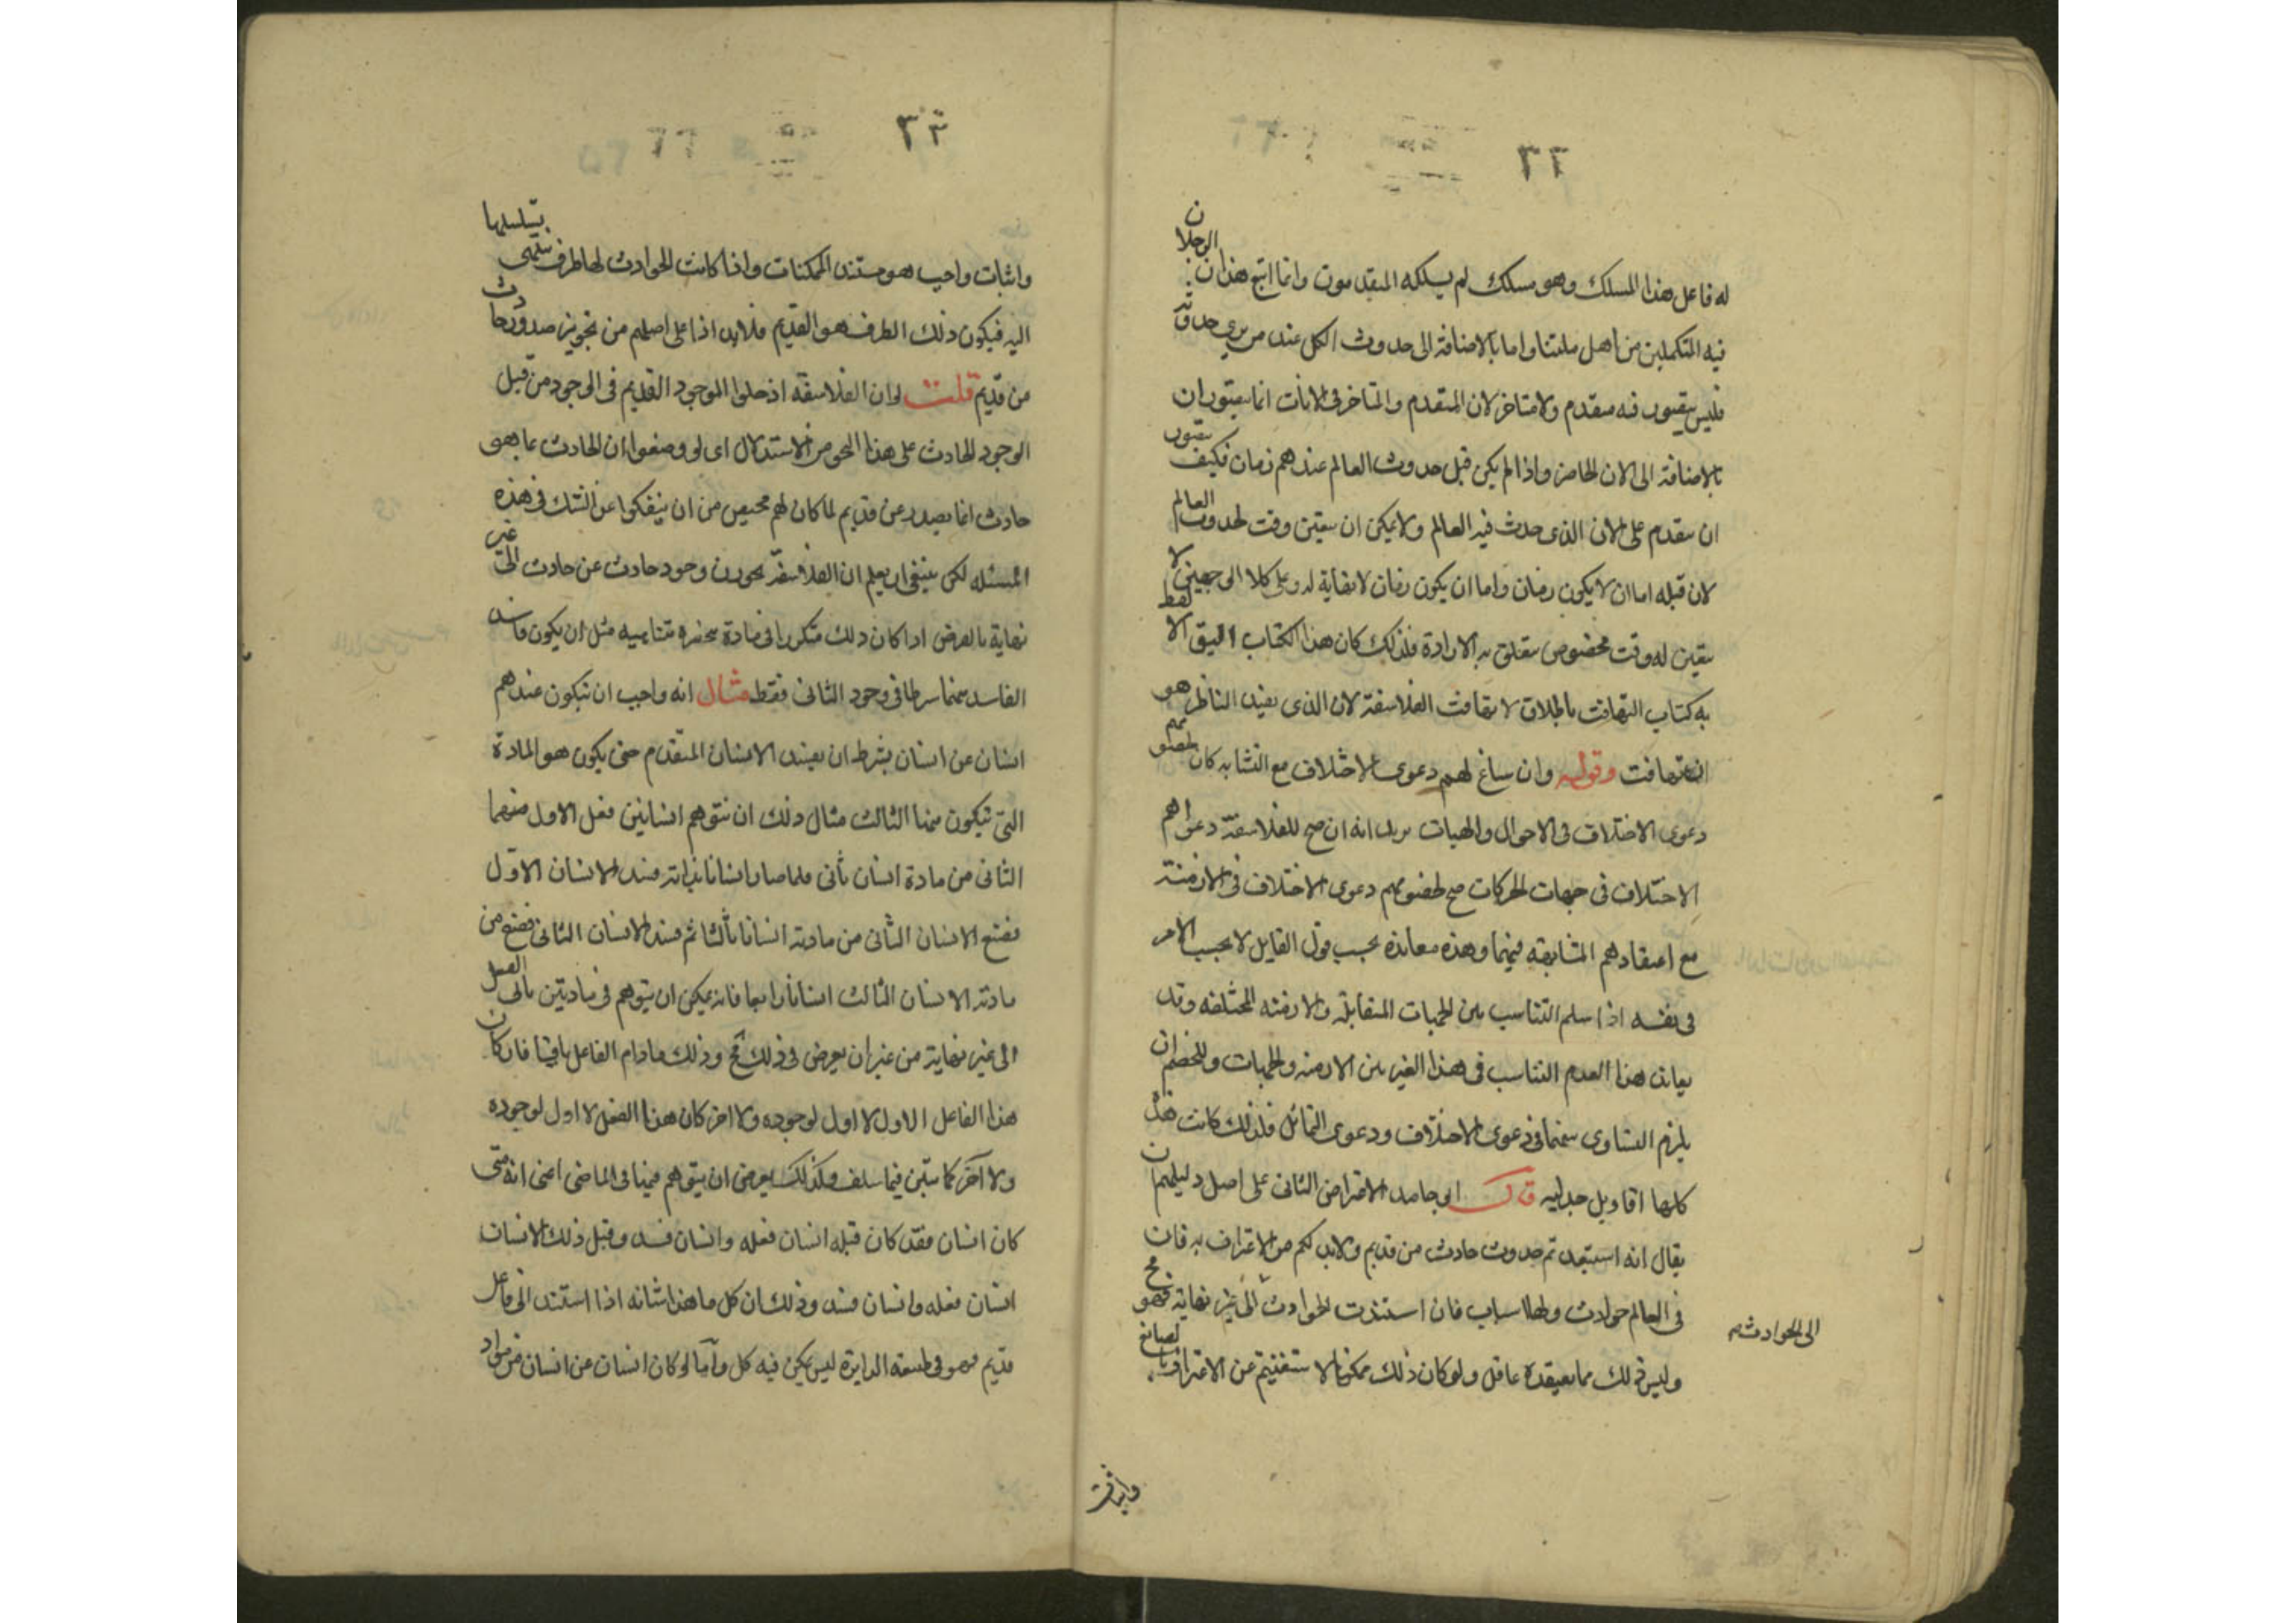 ٢٢
له فاعل هذا المسلك وهو مسلك لم يسلكه المتقدمون وانما اتبع هذان الرجلان
فيه المتكلمين من اهل ملتنا واما بالاضافة الى حدوث الكل عند من يرى حدوثه
فليس يتصور فيه متقدم ولا متاخر لان المتقدم والمتاخر في الانات انما يتصوران
بالاضافة الى الان الحاضر واذا لم يكن قبل حدوث العالم عندهم زمان فكيف يتصور
ان يتقدم على الان الذى حدث فيه العالم ولا يمكن ان يتعين وقت لحدوث العالم
لان قبله اما ان لا يكون زمان واما ان يكون زمان لا نهاية له وعلى كلا الوجهين لا
يتعين له وقت مخصوص يتعلق به الارادة فلذلك كان هذا الكتاب اليق لفظ الا
به كتاب التهافت باطلاق لا تهافت الفلاسفة لان الذى يفيد الناظر هو
ان يتهافت وقوله وان ساغ لهم دعوى الاختلاف مع التشابه كان لخصومهم
دعوى الاختلاف فى الاحوال والهيات يريد انه ان صح للفلاسفة دعواهم
الاختلاف فى جهات الحركات صح لخصومهم دعوى الاختلاف فى الازمنة
مع اعتقادهم المتشابهه فيهما وهذه معاندة بحسب قول القايل لا بحسب الامر
فى نفسه اذا سلم التناسب بين الجهات المتقابلة والازمنه المختلفه وقد
يعاند هذا العدم التناسب فى هذا الغير بين الازمنه والجهات وللخصم ان
يلزم التساوى بينهما فى دعوى الاختلاف ودعوى التماثل فلذلك كانت هذه
كلها اقاويل جدليه قال ابو حامد الاعتراض الثانى على اصل دليلهم ان
يقال انه استبعدتم حدوث حادث من قديم ولابد لكم من الاعتراف به فان
فى العالم حوادث ولها اسباب فان استندت الحوادث الى غير نهاية فهو مح
الى الحوادث
وليس ذلك مما يعتقده عاقل ولو كان ذلك ممكنا لاستغنيتم عن الاعتراف بالصانع
واثبات
٢٣
واثبات واجب هو مستند الممكنات واذا كانت الحوادث لها طرف ينتهى تسلسلها
اليه فيكون ذلك الطرف هو القديم فلابد اذا على اصلهم من تجويز صدور حادث
من قديم قلت لو ان الفلاسفة ادخلوا الموجود القديم فى الوجود من قبل
الوجود الحادث على هذا النحو من الاستدلال اى لو وضعوا ان الحادث بما هو
حادث انما يصدر عن قديم لما كان لهم محيص من ان ينفكوا عن الشك فى هذه
المسئله لكن ينبغى ان يعلم ان الفلاسفة يجوزون وجود حادث عن حادث الى غير
نهاية بالعرض اذا كان ذلك متكررا فى مادة منحصره متناهيه مثل ان يكون فساد
الفاسد منهما شرطا فى وجود الثانى فقط مثال انه واجب ان يكون عندهم
انسان عن انسان بشرط ان يفسد الانسان المتقدم حتى يكون هو المادة
التى يكون منها الثالث مثال ذلك ان نتوهم انسانين فعل الاول منهما
الثانى من مادة انسان ثانى فلما صار انسانا بذاته فسد الانسان الاول
فصنع الانسان الثانى من مادته انسانا ثالثا ثم فسد الانسان الثانى فصنع من
مادته الانسان الثالث انسانا رابعا فانه يمكن ان يتوهم فى مادتين تاتى الفعل
الى غير نهاية من غير ان يعرض فى ذلك مح وذلك مادام الفاعل باقيا فان كان
هذا الفاعل الاول لا اول لوجوده ولا اخر كان هذا الفعل لا اول لوجوده
ولا آخر كما تبين فيما سلف وكذلك يعرض ان يتوهم فيها فى الماضى اعنى انه متى
كان انسان فقد كان قبله انسان فعله وانسان فسد وقبل ذلك الانسان
انسان فعله وانسان فسد وذلك ان كل ما هذا شانه اذا استند الى فاعل
قديم فهو فى طبيعه الدايرة ليس يمكن فيه كل وأما لو كان انسان عن انسان من مواد